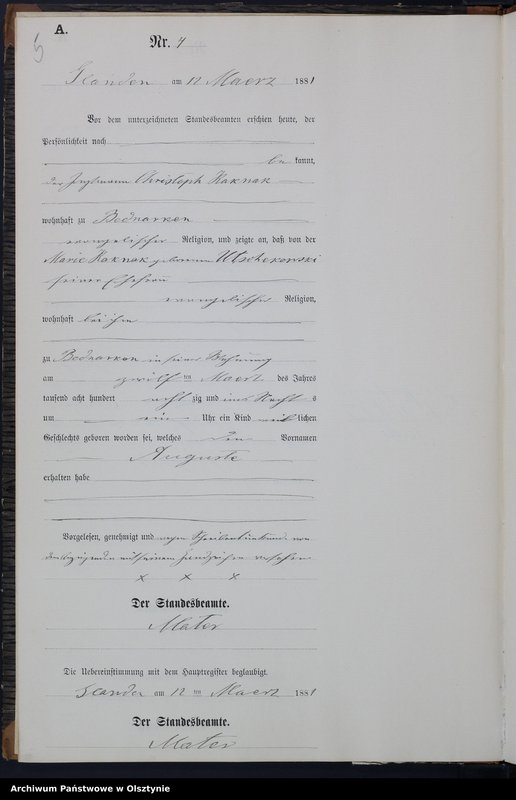 5
A.
Nr. 7
am 12 Maerz 1881
Vor dem unterzeichneten Standesbeamten erschien heute, der
Persönlichkeit nach
be kannt,
der Christoph Kaknak
wohnhaft zu Bednarken
evangelischer Religion, und zeigte an, daß von der
Marie Kaknak geborenen
seiner Ehefrau
evangelischer Religion,
wohnhaft bei ihm
zu Bednarken in seiner Wohnung
am zwölf ten Maerz des Jahres
tausend acht hundert acht zig und eins Nachts
um ein Uhr ein Kind weib lichen
Geschlechts geboren worden sei, welches den Vornamen
Auguste
erhalten habe
Vorgelesen, genehmigt und wegen von
dem mit seinem Handzeichen versehen
x x x
Der Standesbeamte.
Mater
Die Uebereinstimmung mit dem Hauptregister beglaubigt.
am 12 ten Maerz 1881
Der Standesbeamte.
Mater
Archiwum Państwowe w Olsztynie